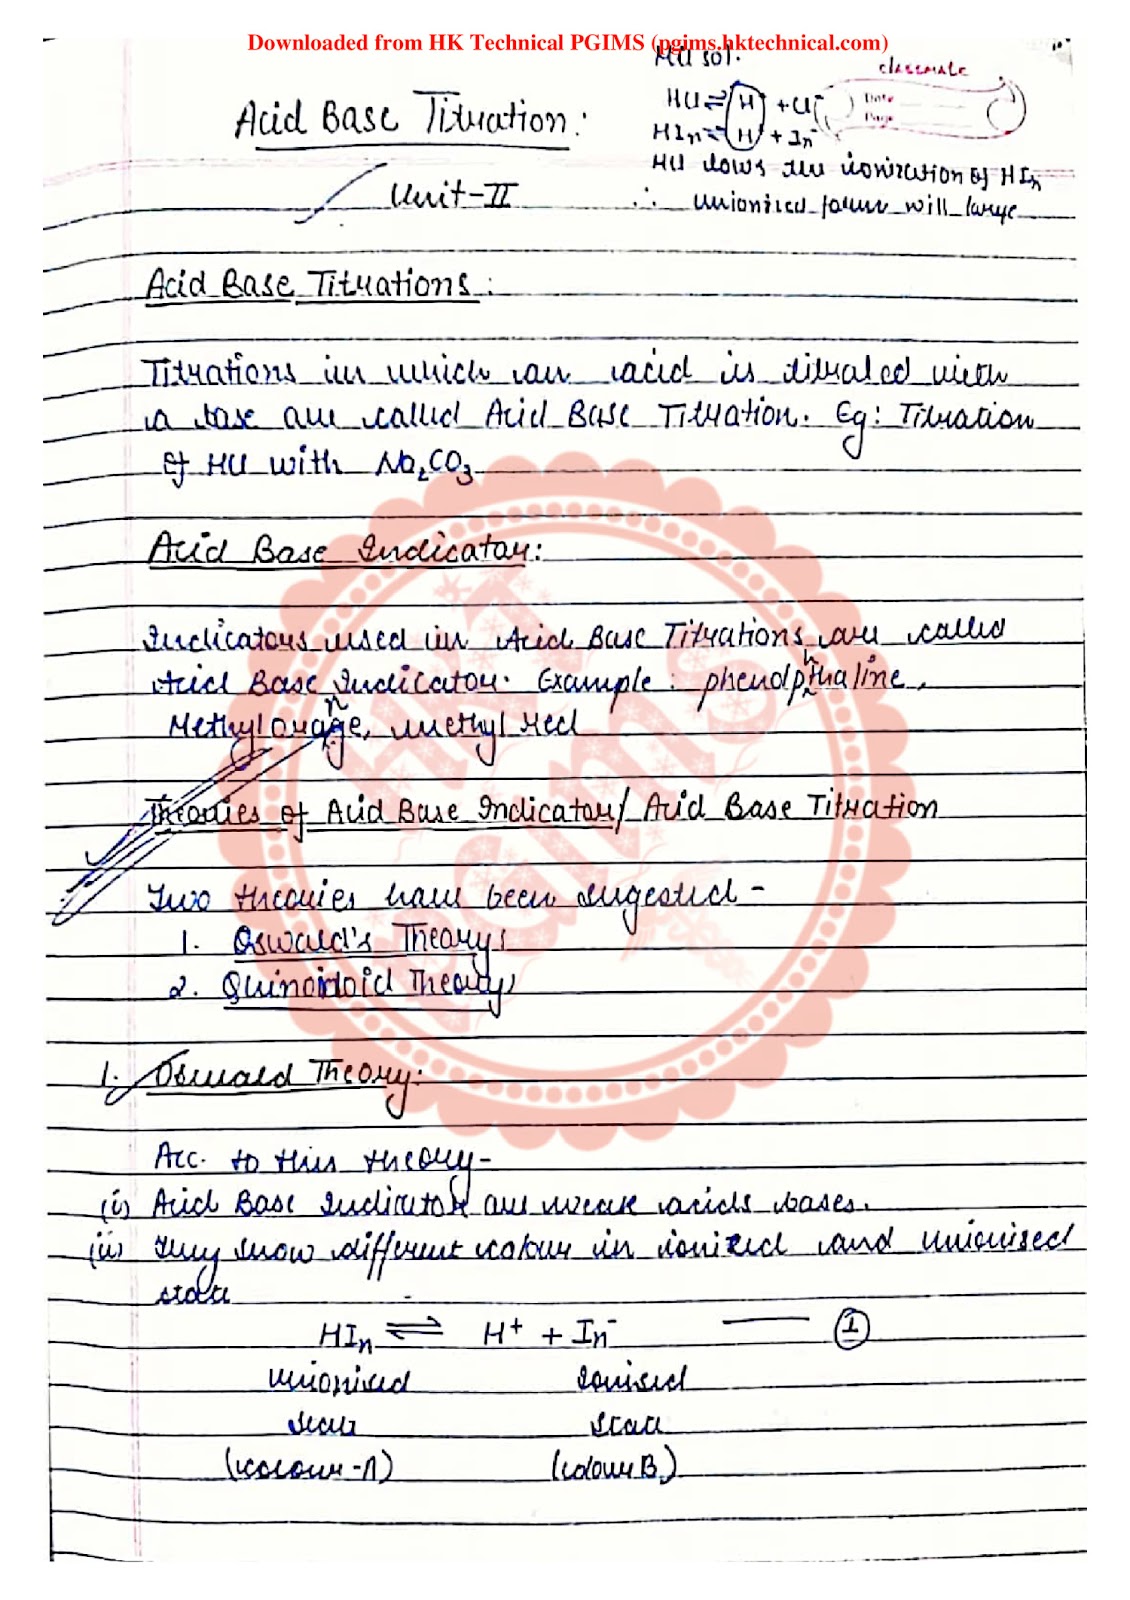 Downloaded from HK Technical PGIMS (pgims.hktechnical.com)
HCl sol.
classmate
Date
Page
HCl ⇌ H⁺ + Cl⁻
HIn ⇌ H⁺ + In⁻
HCl lows the ionization of HIn
∴ unionized form will large
Acid Base Titration:
Unit-II
Acid Base Titrations:
Titrations in which an acid is titrated with
a base are called Acid Base Titration. Eg: Titration
of HCl with Na₂CO₃
Acid Base Indicator:
Indicators used in Acid Base Titrations are called
Acid Base Indicator. Example: phenolphthaline,
Methyl orange, methyl red
Theories of Acid Base Indicator/ Acid Base Titration
Two theories have been sugested -
1. Oswald's Theory:
2. Quinoidoid Theory
HKT PGIMS
1. Oswald Theory:
Acc. to this theory-
(i) Acid Base Indicator are weak acids bases.
(ii) They show different colour in ionized and unionised
state
HIn ⇌ H⁺ + In⁻ —— ①
unionised ionised
state state
(colour-A) (colour B)